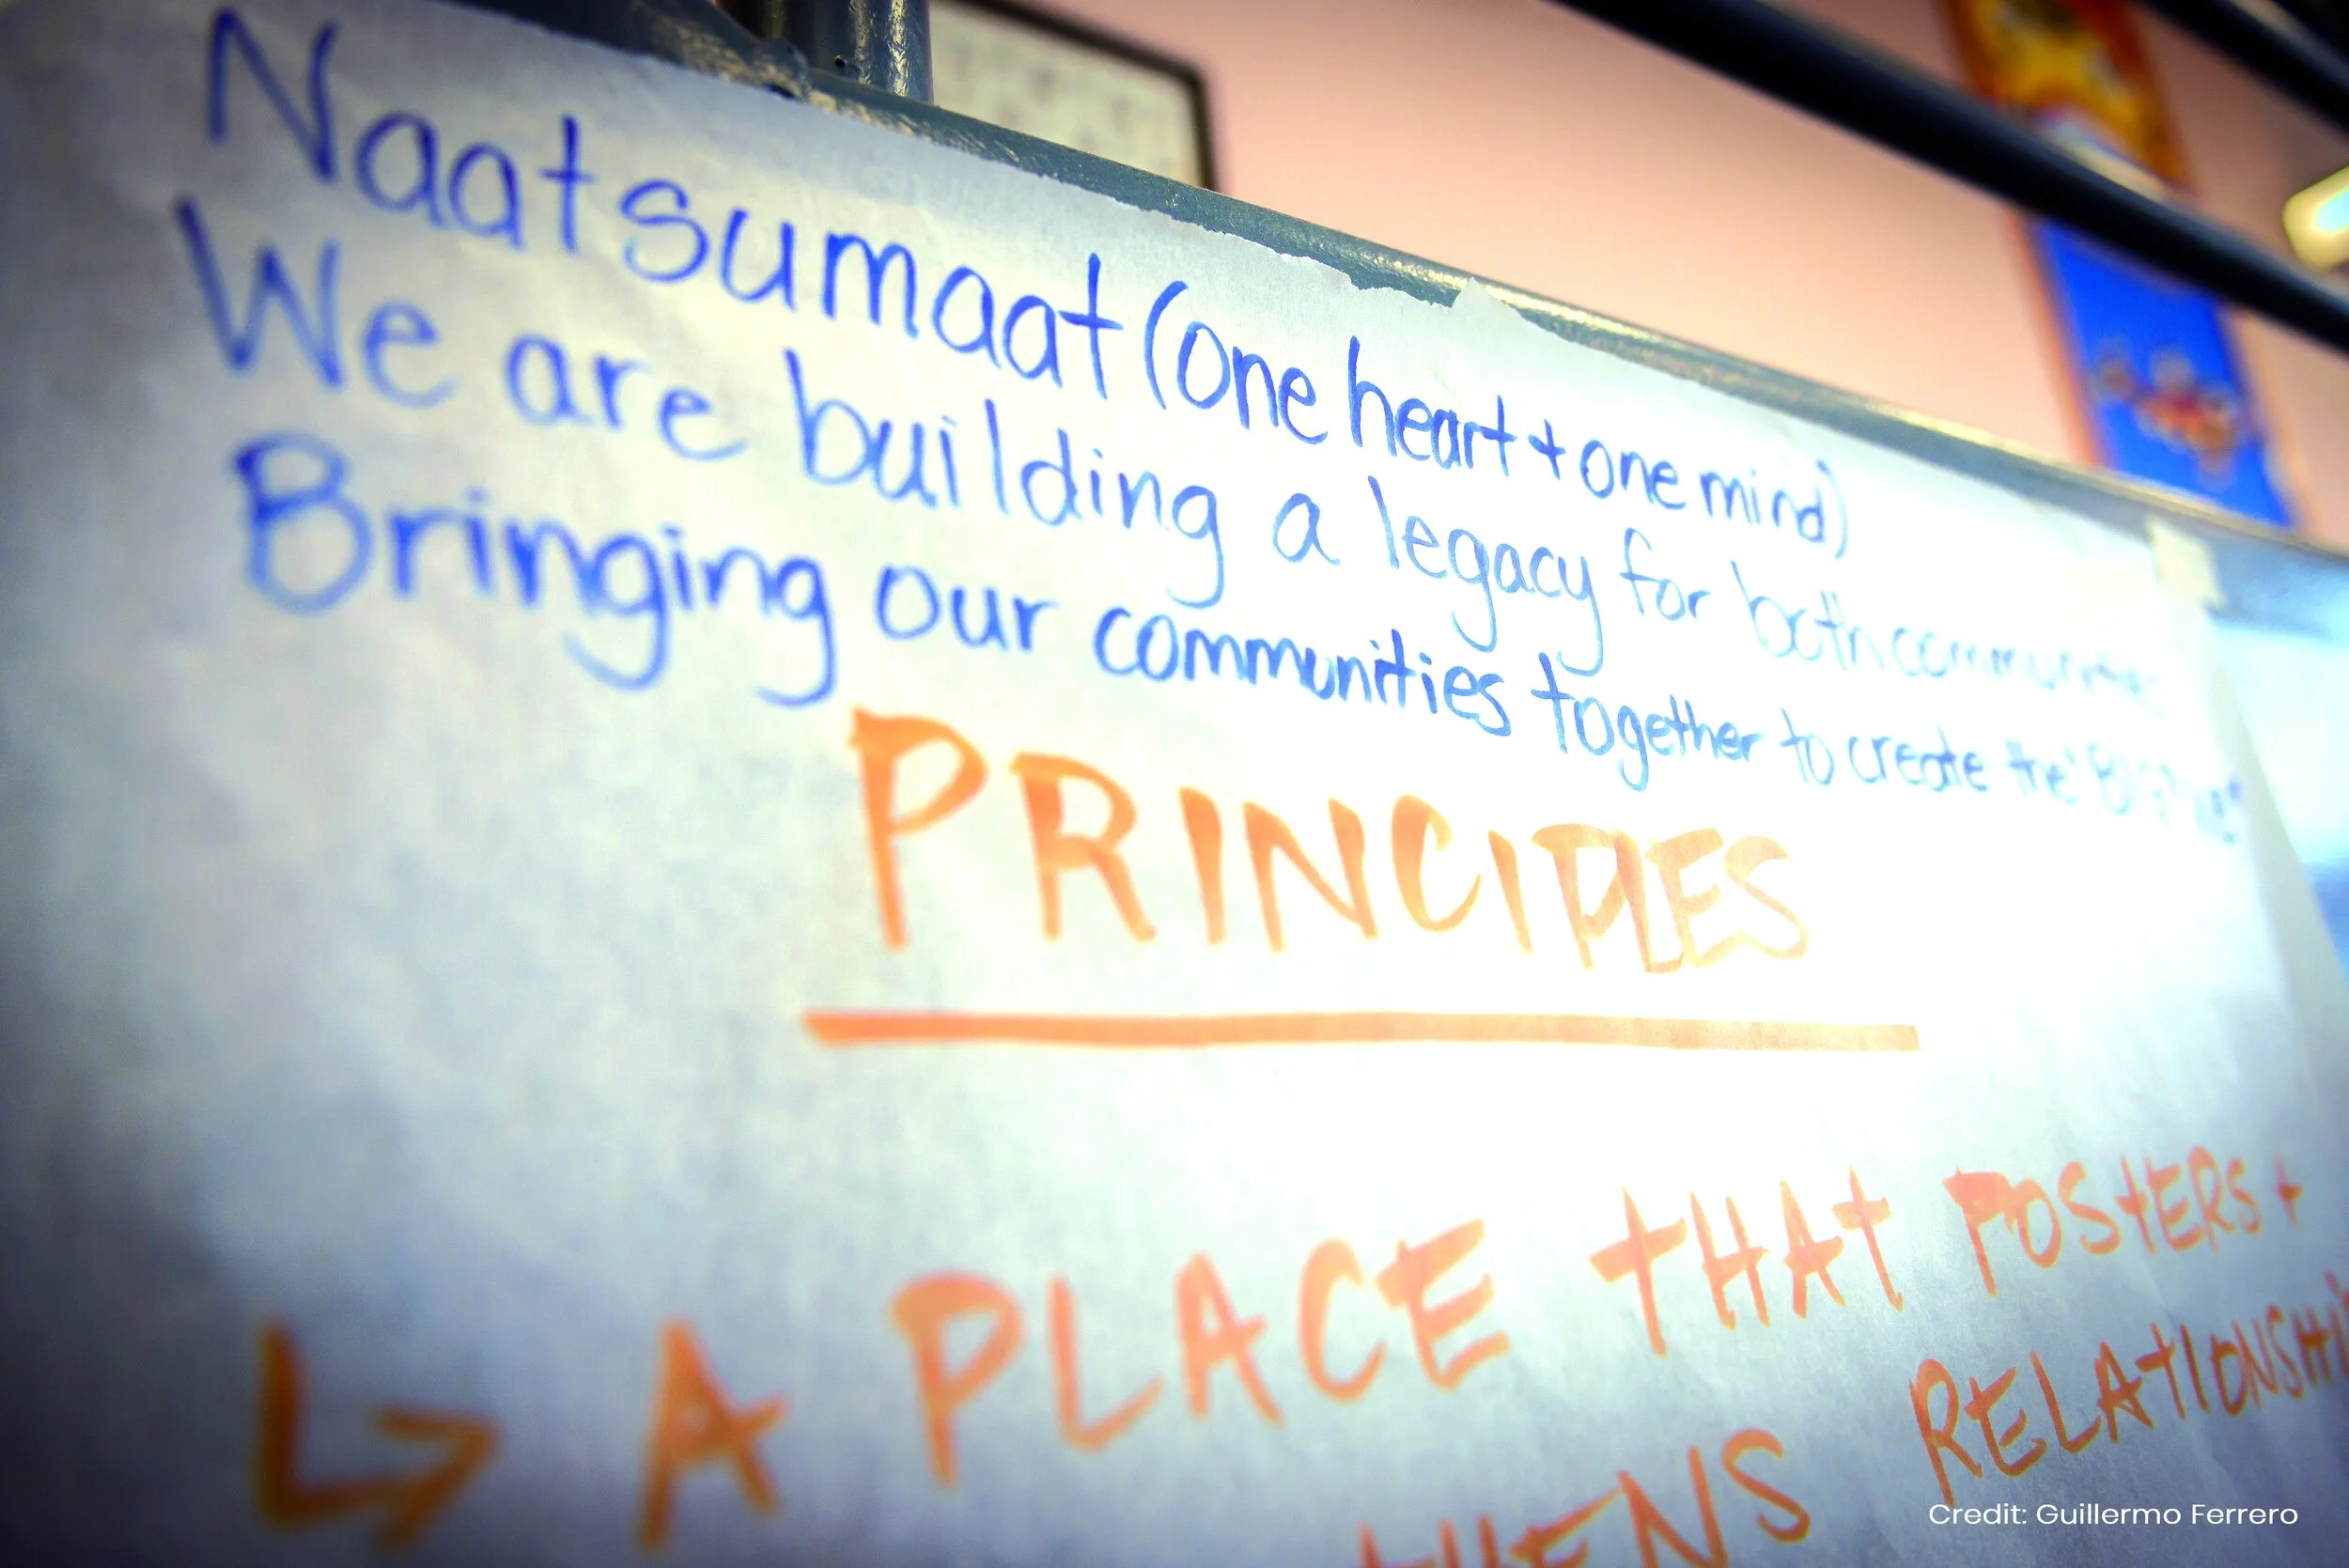 Naatsumaat (one heart + one mind)
We are building a legacy for both communities
Bringing our communities together to create the "BIG
PRINCIPLES
↳ A PLACE THAT FOSTERS +
RELATIONSHI
Credit: Guillermo Ferrero